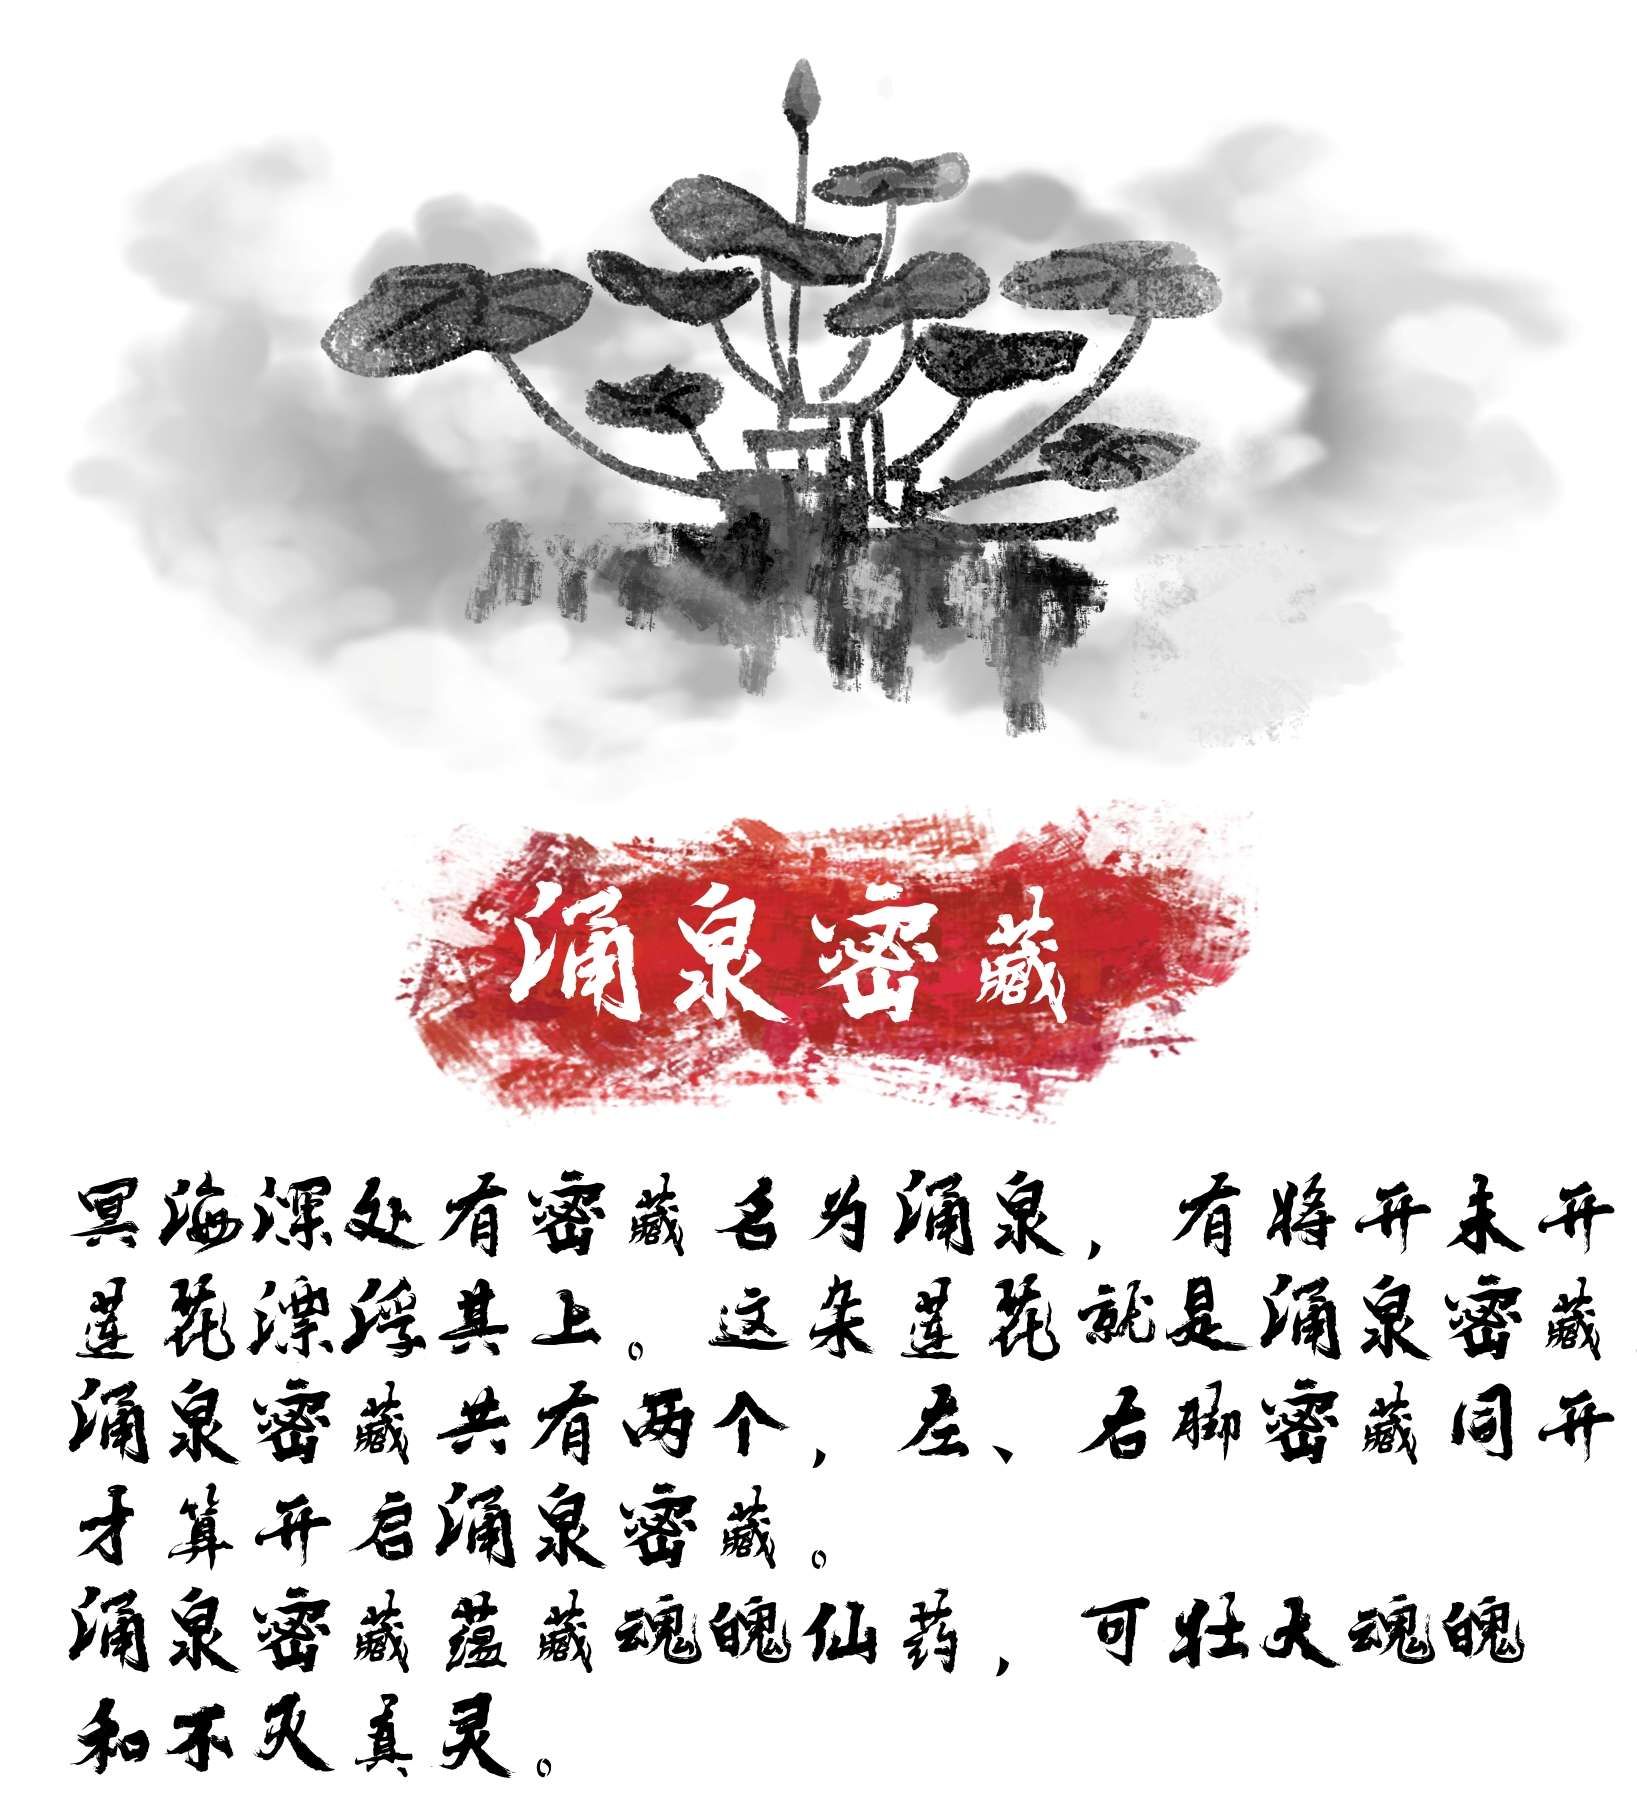 涌泉密藏
冥海深处有密藏名为涌泉，有将开未开
莲花漂浮其上。这朵莲花就是涌泉密藏
涌泉密藏共有两个，左、右脚密藏同开
才算开启涌泉密藏。
涌泉密藏蕴藏魂魄仙药，可壮大魂魄
和不灭真灵。